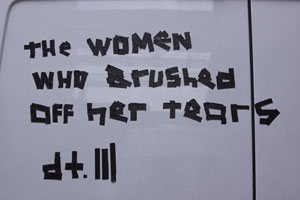 the WOMEN
WHO Brushed
OFF her tears
dt. III